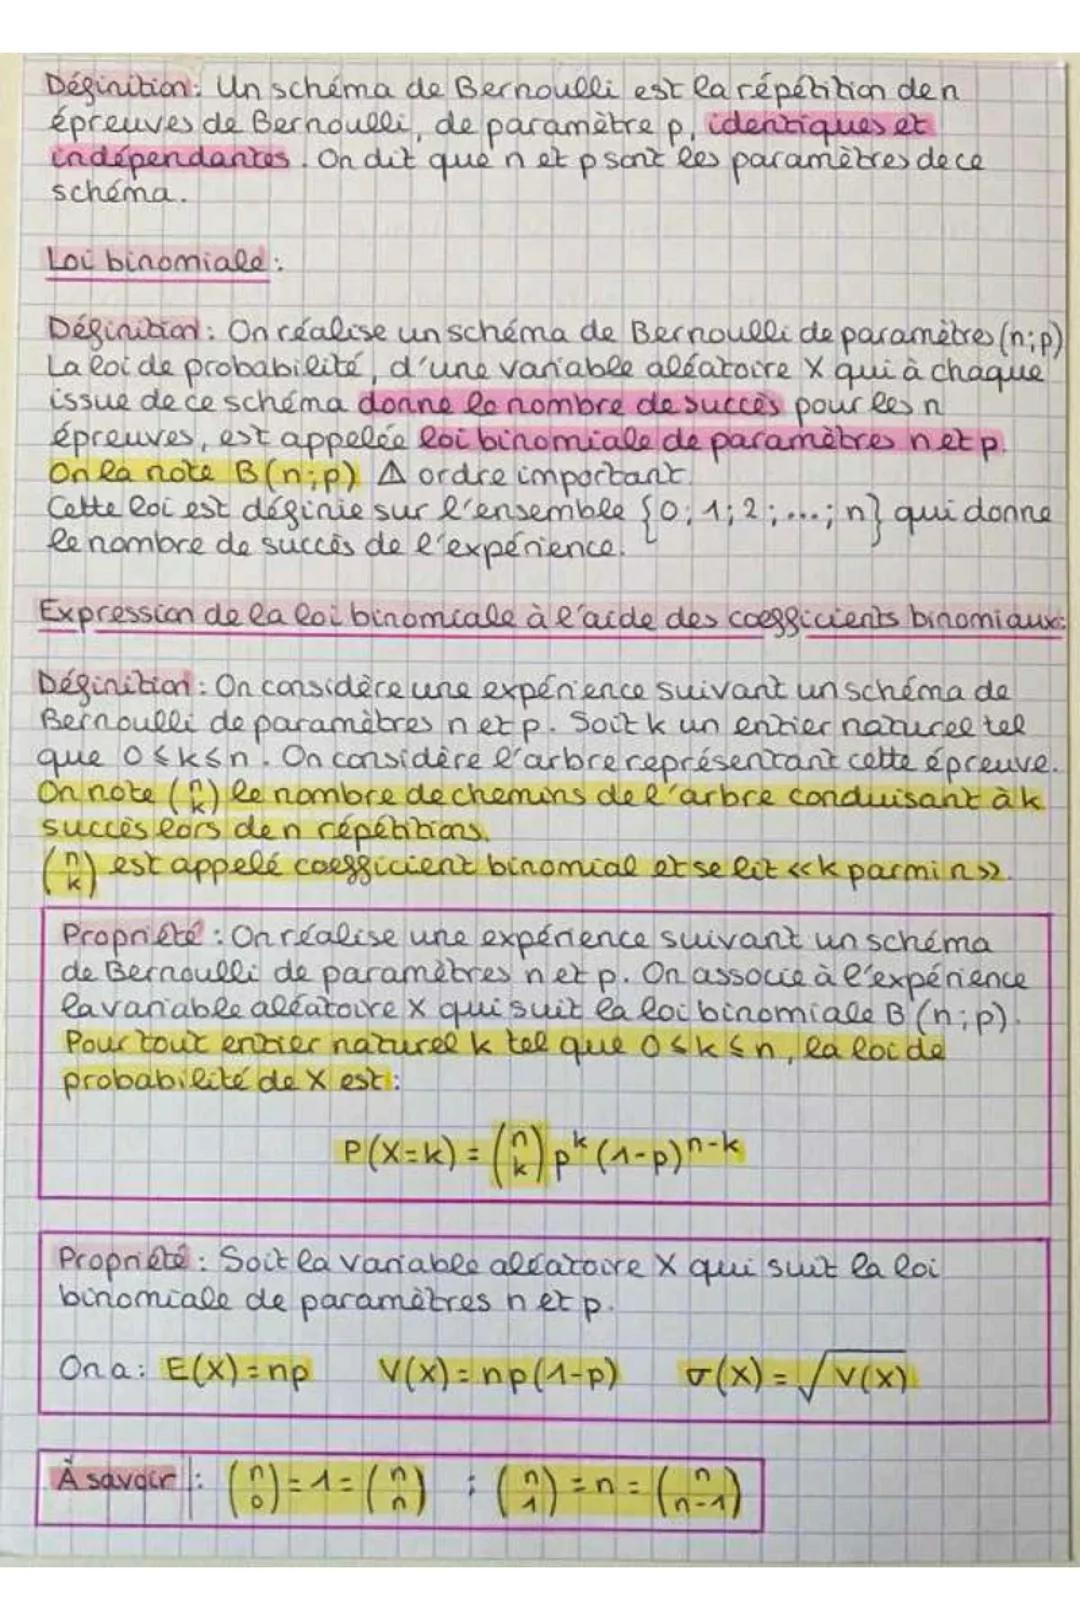 Définition : Un schéma de Bernoulli est la répétition de n
épreuves de Bernoulli, de paramètre p, identiques et
indépendantes. On dit que n et p sont les paramètres de ce
schéma.
Loi binomiale :
Définition : On réalise un schéma de Bernoulli de paramètres (n;p)
La loi de probabilité, d'une variable aléatoire X qui à chaque
issue de ce schéma donne le nombre de succès pour les n
épreuves, est appelée loi binomiale de paramètres n et p.
On la note B(n;p) ⚠ ordre important.
Cette loi est définie sur l'ensemble {0; 1; 2; ...; n} qui donne
le nombre de succès de l'expérience.
Expression de la loi binomiale à l'aide des coefficients binomiaux:
Définition : On considère une expérience suivant un schéma de
Bernoulli de paramètres n et p. Soit k un entier naturel tel
que 0 ≤ k ≤ n. On considère l'arbre représentant cette épreuve.
On note (n k) le nombre de chemins de l'arbre conduisant à k
succès lors de n répétitions.
(n k) est appelé coefficient binomial et se lit «k parmi n».
Propriété : On réalise une expérience suivant un schéma
de Bernoulli de paramètres n et p. On associe à l'expérience
la variable aléatoire X qui suit la loi binomiale B(n;p).
Pour tout entier naturel k tel que 0 ≤ k ≤ n, la loi de
probabilité de X est :
P(X=k) = (n k) p^k (1-p)^n-k
Propriété : Soit la variable aléatoire X qui suit la loi
binomiale de paramètres n et p.
On a : E(X) = np V(X) = np(1-p) σ(X) = √V(X)
À savoir : (n 0) = 1 = (n n) ; (n 1) = n = (n n-1)